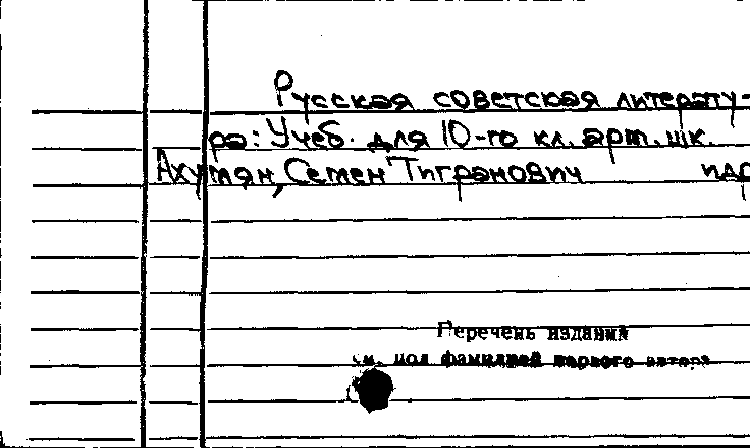 Русская советская литерату-
ра: Учеб. для 10-го кл. арм. шк.
Ахумян, Семен Тигранович и др
Перечень издания
см. под фамилией первого автора